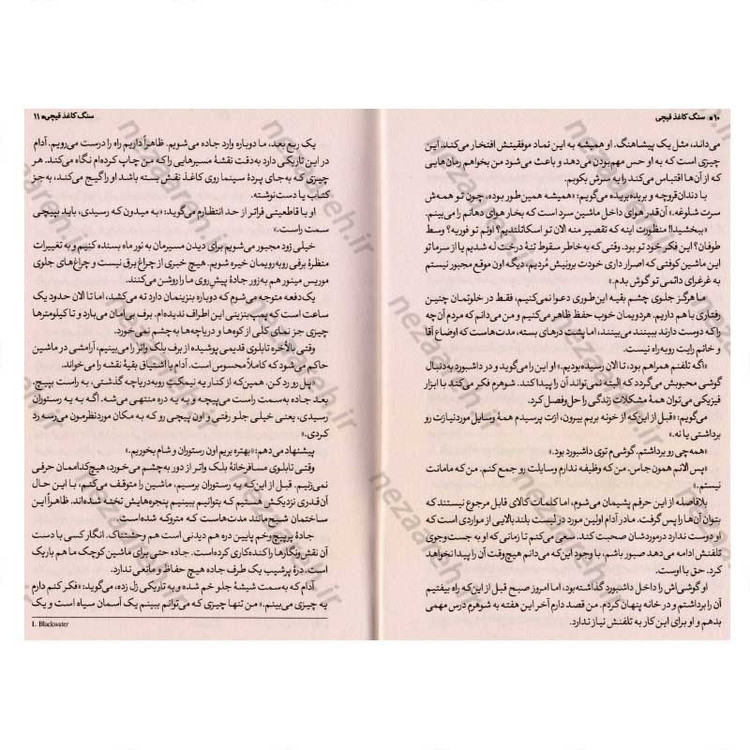 ۱۰ ■ سنگ کاغذ قیچی
می‌داند، مثل یک پیشاهنگ. او همیشه به این نماد موفقیتش افتخار می‌کند. این
چیزی است که به او حس مهم‌بودن می‌دهد و باعث می‌شود من بخواهم رمان‌هایی
که از آن‌ها اقتباس می‌کند را به سرش بکوبم.
با دندان‌قروچه و بریده‌بریده می‌گویم: «همیشه همین‌طور بوده، چون تو همه‌ش
سرت شلوغه.» آن‌قدر هوای داخل ماشین سرد است که بخار هوای دهانم را می‌بینم.
«ببخشید! منظورت اینه که تقصیر منه الان تو اسکاتلندیم؟ اونم تو فوریه؟ وسط
طوفان؟ این فکر خود تو بود. وقتی که به خاطر سقوط تنهٔ درخت له شدیم یا از سرما تو
این ماشین کوفتی که اصرار داری خودت برونیش مُردیم، دیگه اون موقع مجبور نیستم
به غرغرای دائمی تو گوش بدم.»
ما هرگز جلوی چشم بقیه این‌طوری دعوا نمی‌کنیم، فقط در خلوتمان چنین
رفتاری با هم داریم. هردویمان خوب حفظ ظاهر می‌کنیم و من می‌دانم که مردم آن چه
را که دوست دارند ببینند می‌بینند، اما پشت درهای بسته، مدت‌هاست که اوضاع آقا
و خانم رایت روبه‌راه نیست.
«اگه تلفنم همراهم بود، تا الان رسیده بودیم.» او این را می‌گوید و در داشبورد به‌دنبال
گوشی محبوبش می‌گردد که البته نمی‌تواند آن را پیدا کند. شوهرم فکر می‌کند با ابزار
فیزیکی می‌توان همهٔ مشکلات زندگی را حل‌وفصل کرد.
می‌گویم: «قبل از این‌که از خونه بریم بیرون، ازت پرسیدم همهٔ وسایل موردنیازت رو
برداشتی یا نه.»
«همه‌چی رو برداشتم. گوشی‌م توی داشبورد بود.»
«پس الانم همون‌جاس. من که وظیفه ندارم وسایلت رو جمع کنم. من که مامانت
نیستم.»
بلافاصله از این حرفم پشیمان می‌شوم، اما کلمات کالای قابل مرجوع نیستند که
بتوان آن‌ها را پس گرفت. مادر آدام اولین مورد در لیست بلندبالایی از مواردی است که
او دوست ندارد درموردشان صحبت کند. سعی می‌کنم تا زمانی که او به جست‌وجوی
تلفنش ادامه می‌دهد صبور باشم، با وجود این‌که می‌دانم هیچ‌وقت آن را پیدا نخواهد
کرد. حق با اوست.
او گوشی‌اش را داخل داشبورد گذاشته بود، اما امروز صبح قبل از این‌که راه بیفتیم
آن را برداشتم و در خانه پنهان کردم. من قصد دارم آخر این هفته به شوهرم درس مهمی
بدهم و او برای این کار به تلفنش نیاز ندارد.
سنگ کاغذ قیچی ■ ۱۱
یک ربع بعد، ما دوباره وارد جاده می‌شویم. ظاهراً داریم راه را درست می‌رویم. آدام
در این تاریکی دارد به‌دقت نقشهٔ مسیرهایی را که من چاپ کرده‌ام نگاه می‌کند. هر
چیزی که به‌جای پردهٔ سینما روی کاغذ نقش بسته باشد او را گیج می‌کند، به‌جز
کتاب یا دست‌نوشته.
او با قاطعیتی فراتر از حد انتظارم می‌گوید: «به میدون که رسیدی، باید بپیچی
سمت راست.»
خیلی زود مجبور می‌شویم برای دیدن مسیرمان به نور ماه بسنده کنیم و به تغییرات
منظرهٔ برفی روبه‌رویمان خیره شویم. هیچ خبری از چراغ برق نیست و چراغ‌های جلوی
موریس مینور هم به‌زور جادهٔ پیش روی ما را روشن می‌کنند.
یک‌دفعه متوجه می‌شوم که دوباره بنزینمان دارد ته می‌کشد، اما تا الان حدود یک
ساعت است که پمپ‌بنزینی این اطراف ندیده‌ام. برف بی‌امان می‌بارد و تا کیلومترها
چیزی جز نمای کلی از کوه‌ها و دریاچه‌ها به چشم نمی‌خورد.
وقتی بالاخره تابلوی قدیمی پوشیده از برف بلک واتر را می‌بینیم، آرامشی در ماشین
حاکم می‌شود که کاملاً محسوس است. آدام با اشتیاق بقیهٔ نقشه را می‌خواند.
«پل رو رد کن. همین‌که از کنار یه نیمکت روبه دریاچه گذشتی، به راست بپیچ.
بعد جاده به‌سمت راست می‌پیچه و به یه دره منتهی می‌شه. اگه به یه رستوران
رسیدی، یعنی خیلی جلو رفتی و اون پیچی رو که به مکان موردنظرمون می‌رسه رد
کردی.»
پیشنهاد می‌دهم: «بهتره بریم اون رستوران و شام بخوریم.»
وقتی تابلوی مسافرخانهٔ بلک واتر از دور به‌چشم می‌خورد، هیچ‌کداممان حرفی
نمی‌زنیم. قبل از این‌که به رستوران برسیم، ماشین را متوقف می‌کنم، با این حال
آن‌قدری نزدیکش هستیم که بتوانیم ببینیم پنجره‌هایش تخته شده‌اند. ظاهراً این
ساختمان شبح‌مانند مدت‌هاست که متروکه شده است.
جادهٔ پرپیچ‌وخم پایین دره هم دیدنی است هم وحشتناک. انگار کسی با دست
آن نقش‌ونگارها را کنده‌کاری کرده است. جاده حتی برای ماشین کوچک ما هم باریک
است، درهٔ پرشیب یک طرف جاده هیچ حفاظ و مانعی ندارد.
آدام که به‌سمت شیشهٔ جلو خم شده و به تاریکی زل زده، می‌گوید: «فکر کنم دارم
یه چیزی می‌بینم.» من تنها چیزی که می‌توانم ببینم یک آسمان سیاه است و یک
1. Blackwater
nezaareh.ir